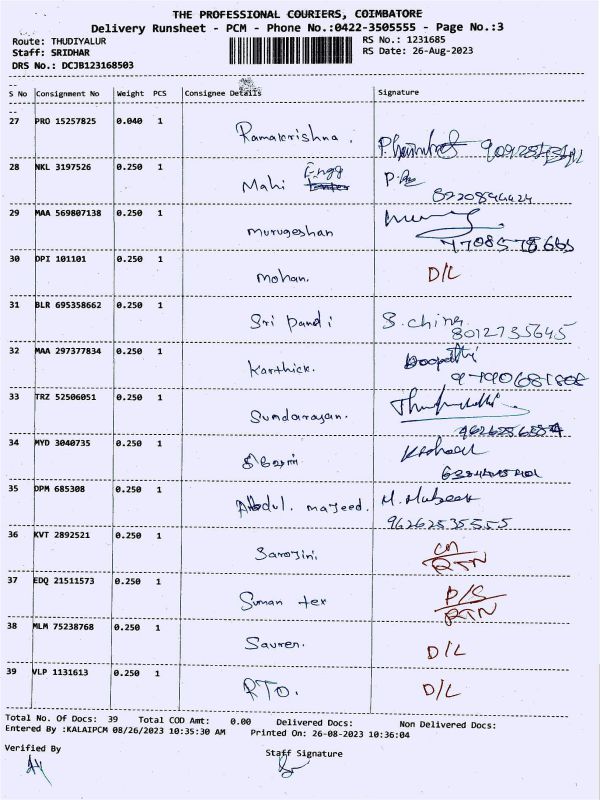 THE PROFESSIONAL COURIERS, COIMBATORE
Delivery Runsheet - PCM - Phone No.:0422-3505555 - Page No.:3
Route: THUDIYALUR RS No.: 1231685
Staff: SRIDHAR RS Date: 26-Aug-2023
DRS No.: DCJB123168503
S No Consignment No Weight PCS Consignee Details Signature
27 PRO 15257825 0.040 1 Ramakrishna.
28 NKL 3197526 0.250 1 Mahi Engg
8220894424
29 MAA 569807138 0.250 1 Murugeshan
30 DPI 101101 0.250 1 Mohan. D/L
31 BLR 695358662 0.250 1 Sri Pandi S. china
8012735645
32 MAA 297377834 0.250 1 Karthick.
33 TRZ 52506051 0.250 1 Sundarajan.
34 MYD 3040735 0.250 1
35 DPM 685308 0.250 1 Abdul. majeed.
96262535555
36 KVT 2892521 0.250 1 Sarojini.
RTN
37 EDQ 21511573 0.250 1 Suman tex P/S
RTN
38 MLM 75238768 0.250 1 Sauren. D/L
39 VLP 1131613 0.250 1 RTO. D/L
Total No. Of Docs: 39 Total COD Amt: 0.00 Delivered Docs: Non Delivered Docs:
Entered By :KALAIPCM 08/26/2023 10:35:30 AM Printed On: 26-08-2023 10:36:04
Verified By Staff Signature